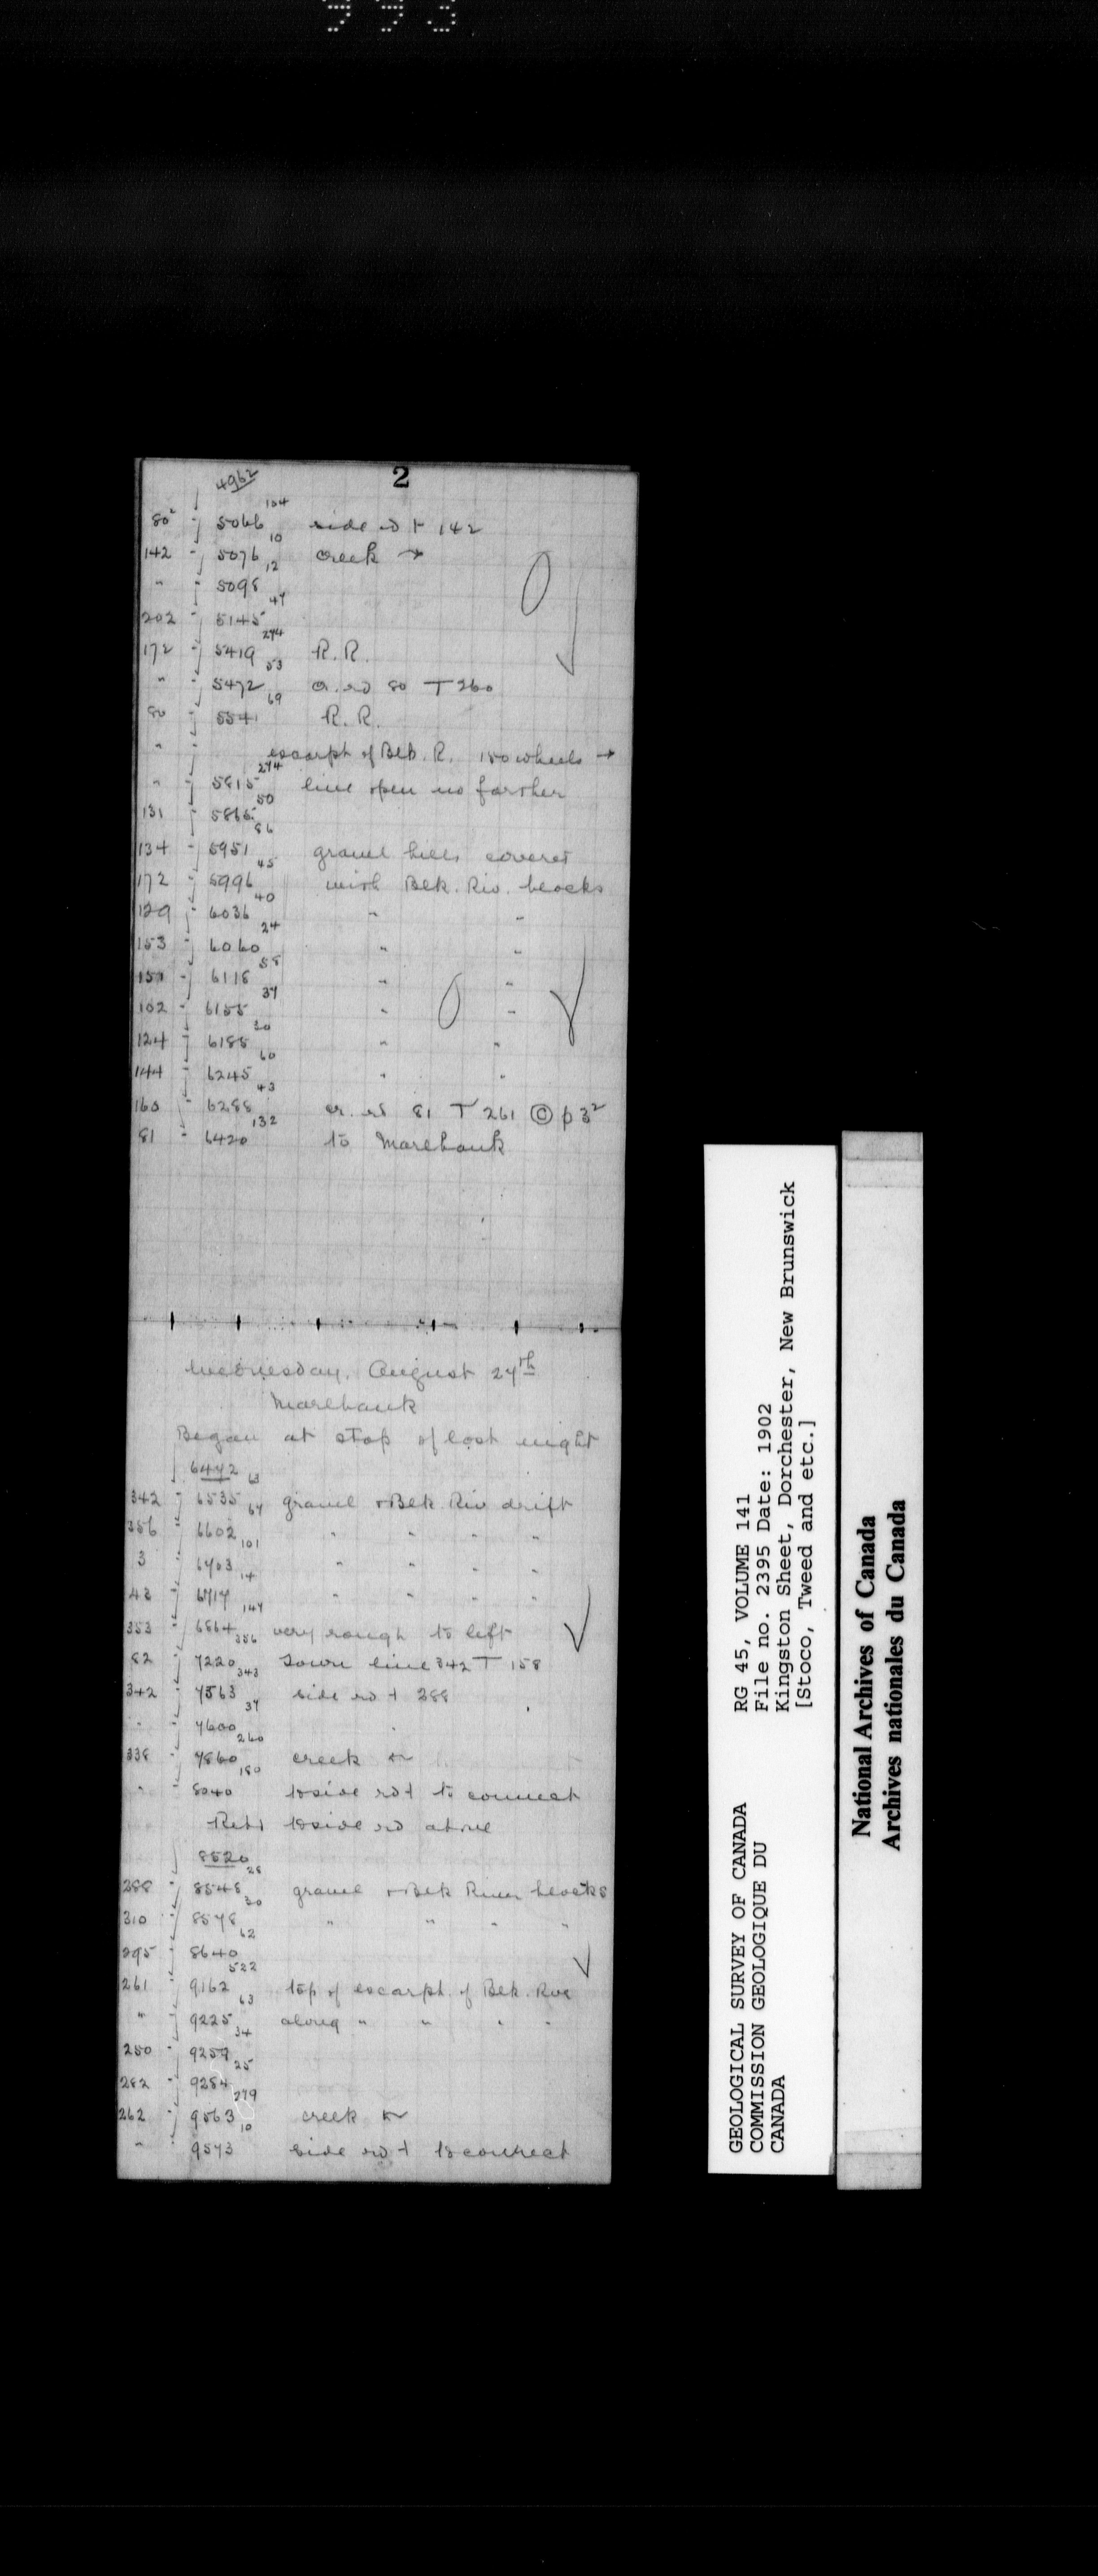 993
2
4962
104
80² " 5066 side rd ⊦ 142
10
142 " 5076 creek →
12
" " 5098
47
202 " 5145
274
172 " 5419 R.R.
53
" " 5472 cr. rd 80 T 260
69
80 " 5541 R.R.
" " escarpt of Blk. R. 150 wheels →
274
" " 5815 line open no farther
50
131 " 5865
86
134 " 5951 gravel hills covered
45
172 " 5996 with Blk. Riv. blocks
40
129 " 6036 " "
24
153 " 6060 " "
58
151 " 6118 " "
37
102 " 6155 " "
30
124 " 6185 " "
60
144 " 6245 " "
43
160 " 6288 cr. rd 81 T 261 © p 3²
132
81 " 6420 to Marlbank
Wednesday, August 27th
Marlbank
Began at stop of last night
6472 63
342 " 6535 67 gravel + Blk. Riv drift
356 " 6602 101 " " " "
3 " 6703 14 " " " "
43 " 6717 147 " " " "
353 " 6864 356 very rough to left
82 " 7220 343 town line 342 T 158
342 " 7563 37 side rd ⊣ 288
" " 7600 260
338 " 7860 180 creek ←
" " 8040 to side rd ⊣ to connect
Retd to side rd above
8520 28
288 " 8548 30 gravel + Blk River blocks
310 " 8578 62 " " " "
295 " 8640 522
261 " 9162 63 top of escarpt. of Blk. Riv
" " 9225 34 along " " " "
250 " 9259 25
282 " 9284 279
262 " 9563 10 creek ←
" " 9573 side rd ⊣ to connect
GEOLOGICAL SURVEY OF CANADA
COMMISSION GEOLOGIQUE DU
CANADA
RG 45, VOLUME 141
File no. 2395 Date: 1902
Kingston Sheet, Dorchester, New Brunswick
[Stoco, Tweed and etc.]
National Archives of Canada
Archives nationales du Canada